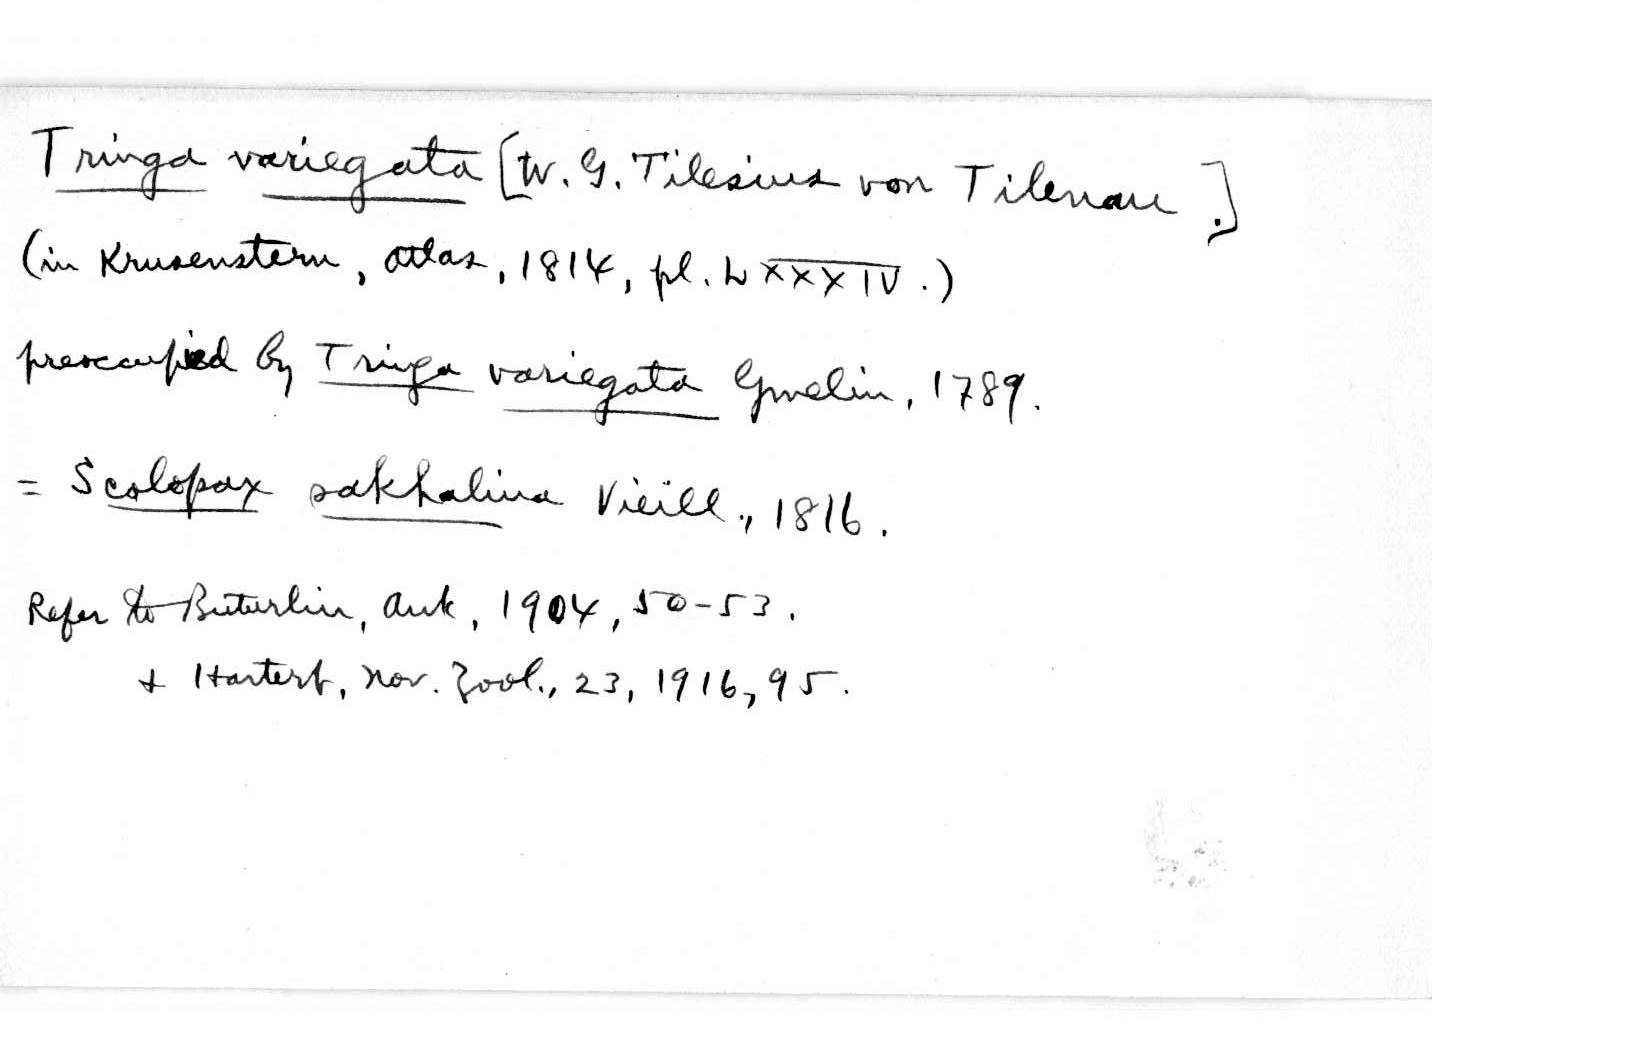 Tringa variegata [W. G. Tilesius von Tilenau.]
(in Krusenstern, Atlas, 1814, pl. LXXXIV.)
preoccupied by Tringa variegata Gmelin, 1789.
= Scolopax sakhalina Vieill., 1816.
Refer to Buturlin, Auk, 1904, 50-53.
+ Hartert, Nov. Zool., 23, 1916, 95.